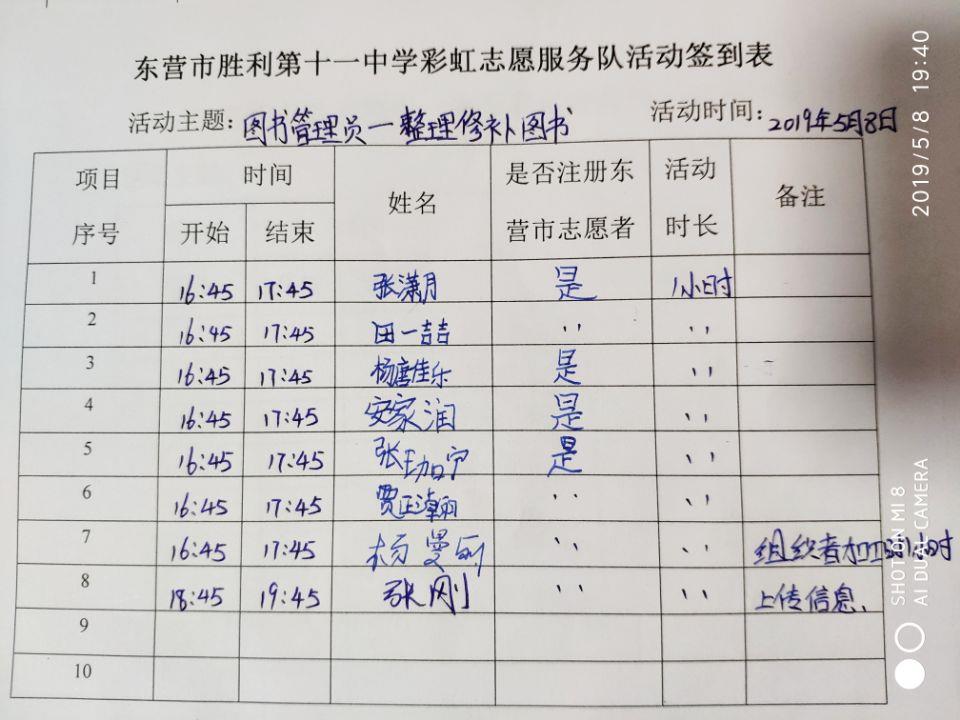 东营市胜利第十一中学彩虹志愿服务队活动签到表
活动主题:图书管理员—整理修补图书 活动时间:2019年5月8日
项目 时间 姓名 是否注册东 活动 备注
序号 开始 结束 营市志愿者 时长
1 16:45 17:45 张潇月 是 1小时
2 16:45 17:45 田一喆 〃 〃
3 16:45 17:45 杨唐佳乐 是 〃
4 16:45 17:45 安家润 是 〃
5 16:45 17:45 张珈宁 是 〃
6 16:45 17:45 贾正瀚 〃 〃
7 16:45 17:45 杨曼 〃 〃 组织者加 小时
8 18:45 19:45 张刚 〃 〃 上传信息.
9
10
2019/5/8 19:40
SHOT ON MI 8
AI DUAL CAMERA